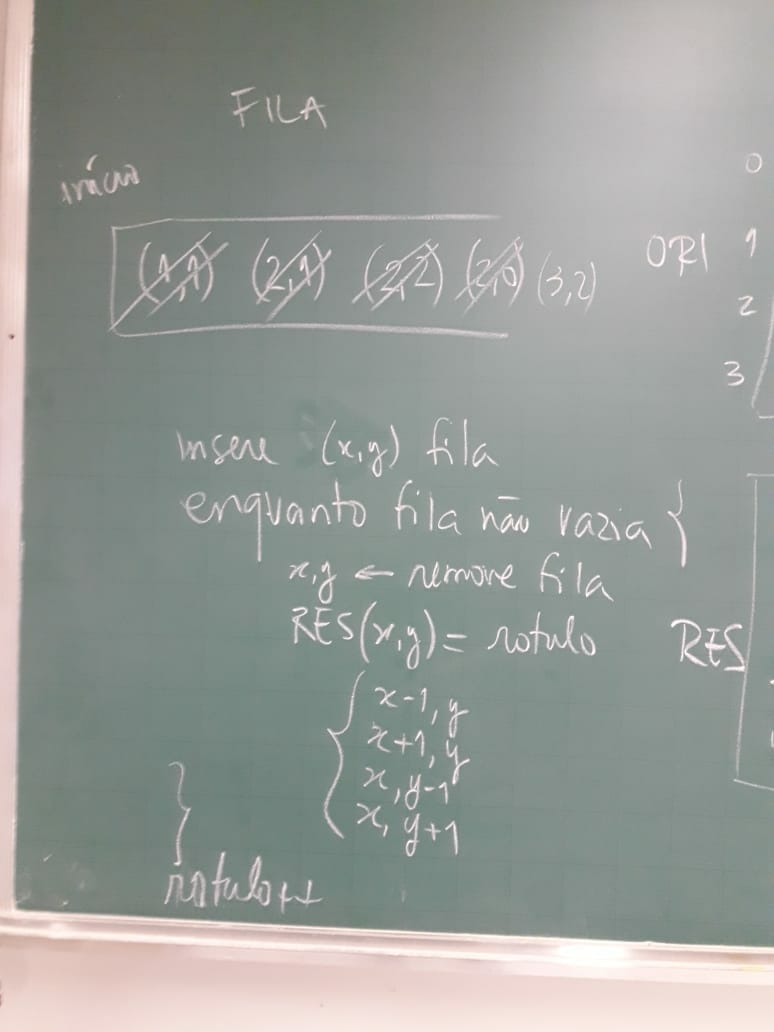 FILA
início
0
(1,1) (2,1) (2,2) (2,0) (3,2)
ORI 1
2
3
insere (x,y) fila
enquanto fila não vazia {
x,y ← remove fila
RES(x,y) = rotulo
RES
x-1, y
x+1, y
x, y-1
x, y+1
}
rotulo++